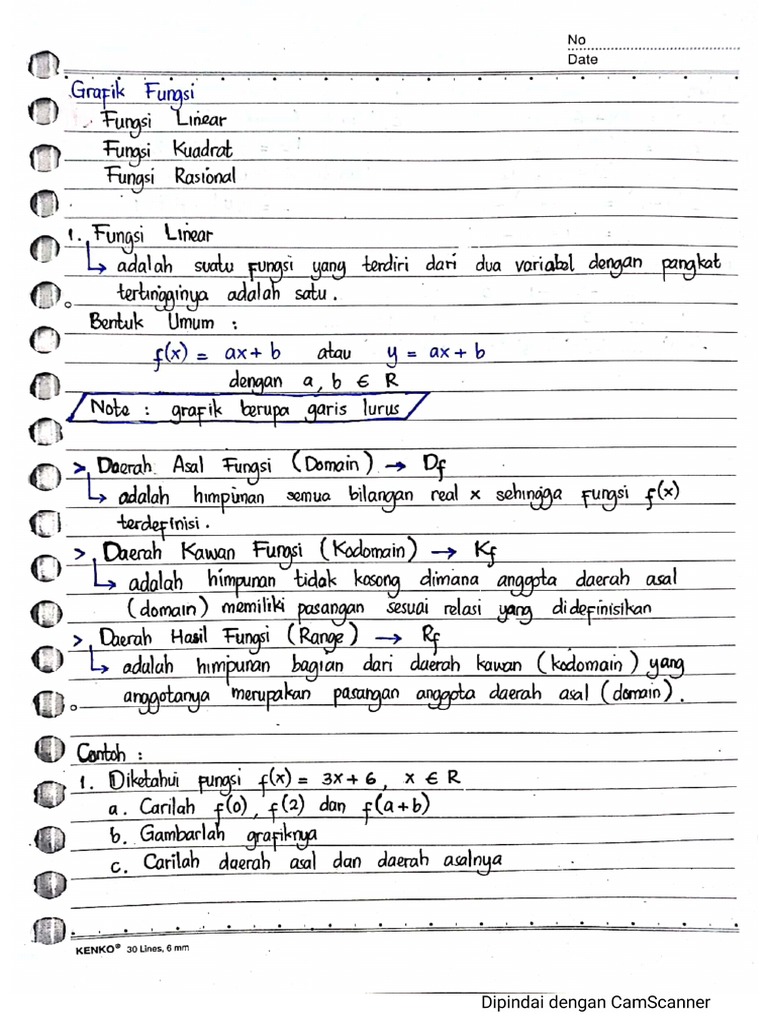 No
Date
Grafik Fungsi
Fungsi Linear
Fungsi Kuadrat
Fungsi Rasional
1. Fungsi Linear
↳ adalah suatu fungsi yang terdiri dari dua variabel dengan pangkat
tertingginya adalah satu.
Bentuk Umum :
f(x) = ax + b atau y = ax + b
dengan a, b ∈ R
Note : grafik berupa garis lurus
> Daerah Asal Fungsi (Domain) → Df
↳ adalah himpunan semua bilangan real x sehingga fungsi f(x)
terdefinisi.
> Daerah Kawan Fungsi (Kodomain) → Kf
↳ adalah himpunan tidak kosong dimana anggota daerah asal
(domain) memiliki pasangan sesuai relasi yang didefinisikan
> Daerah Hasil Fungsi (Range) → Rf
↳ adalah himpunan bagian dari daerah kawan (kodomain) yang
anggotanya merupakan pasangan anggota daerah asal (domain).
Contoh :
1. Diketahui fungsi f(x) = 3x + 6, x ∈ R
a. Carilah f(0), f(2) dan f(a+b)
b. Gambarlah grafiknya
c. Carilah daerah asal dan daerah asalnya
KENKO® 30 Lines, 6 mm
Dipindai dengan CamScanner